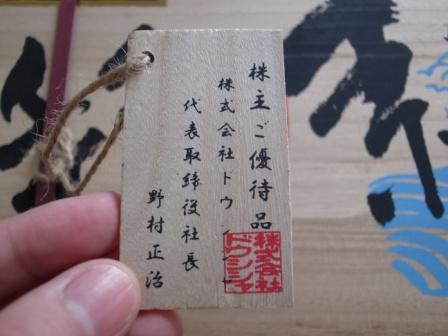 株主ご優待品
株式会社ドウシシャ
代表取締役社長
野村正治
株式会社
ドウシシャ